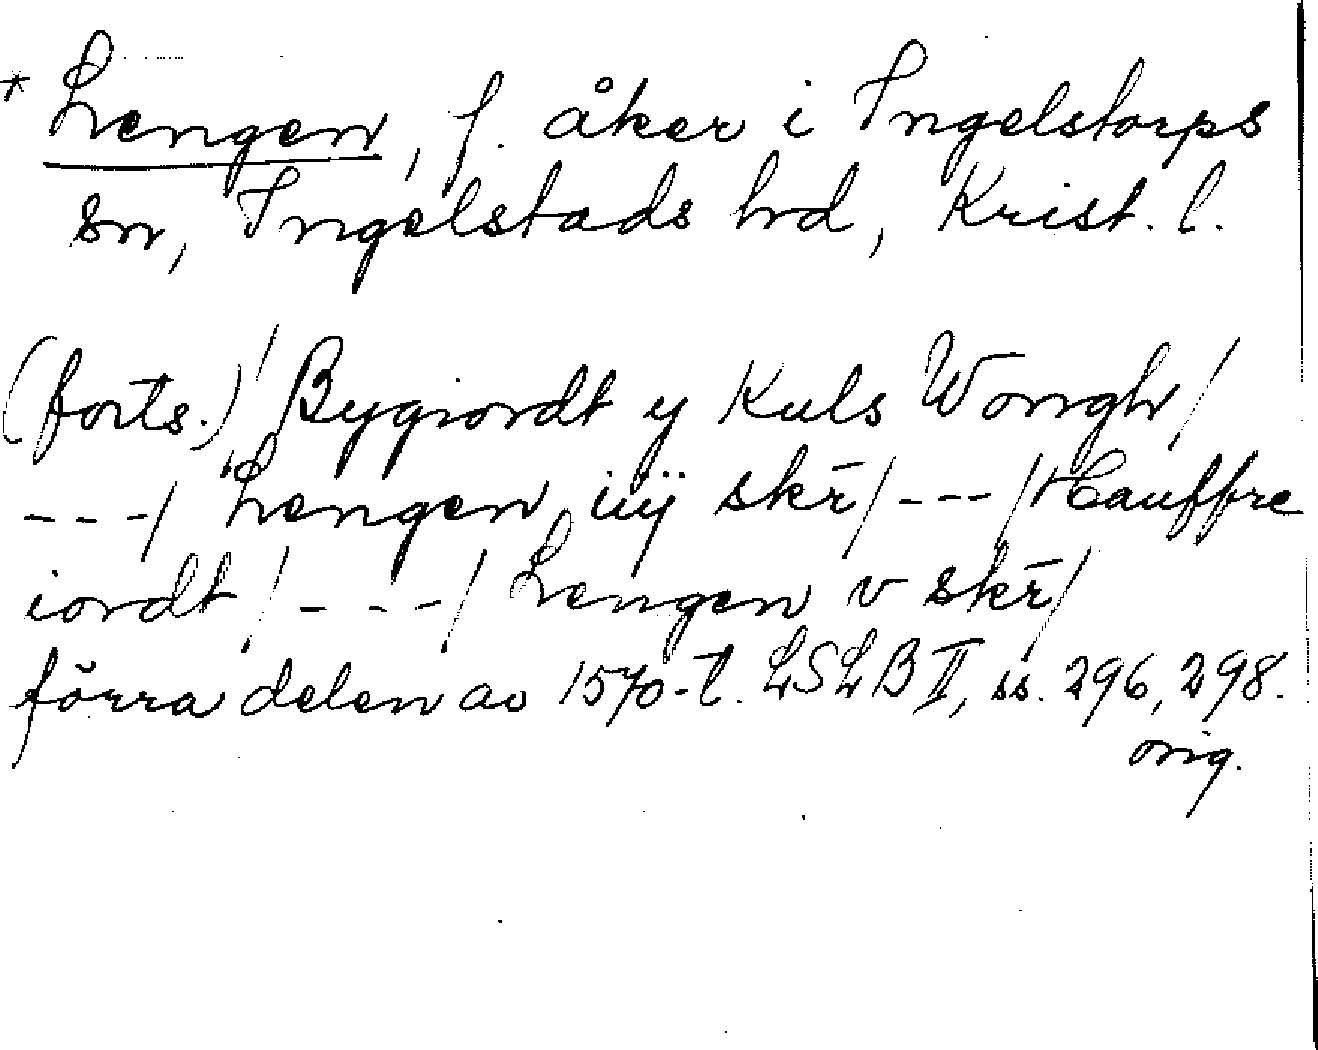 * Lengen, f. åker i Ingelstorps
sn, Ingelstads hrd, Krist. l.
(forts.) / Bygiordt y Kuls Wongh /
---/ Lengen iiÿ skr̄ / --- / Hauffre
iordt / --- / Lengen v skr̄ /
förra delen av 1570-t. LSLB II, ss. 296, 298.
orig.